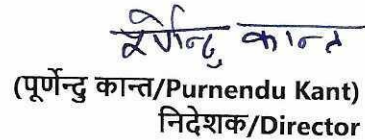 पूर्णेन्दु कान्त
(पूर्णेन्दु कान्त/Purnendu Kant)
निदेशक/Director